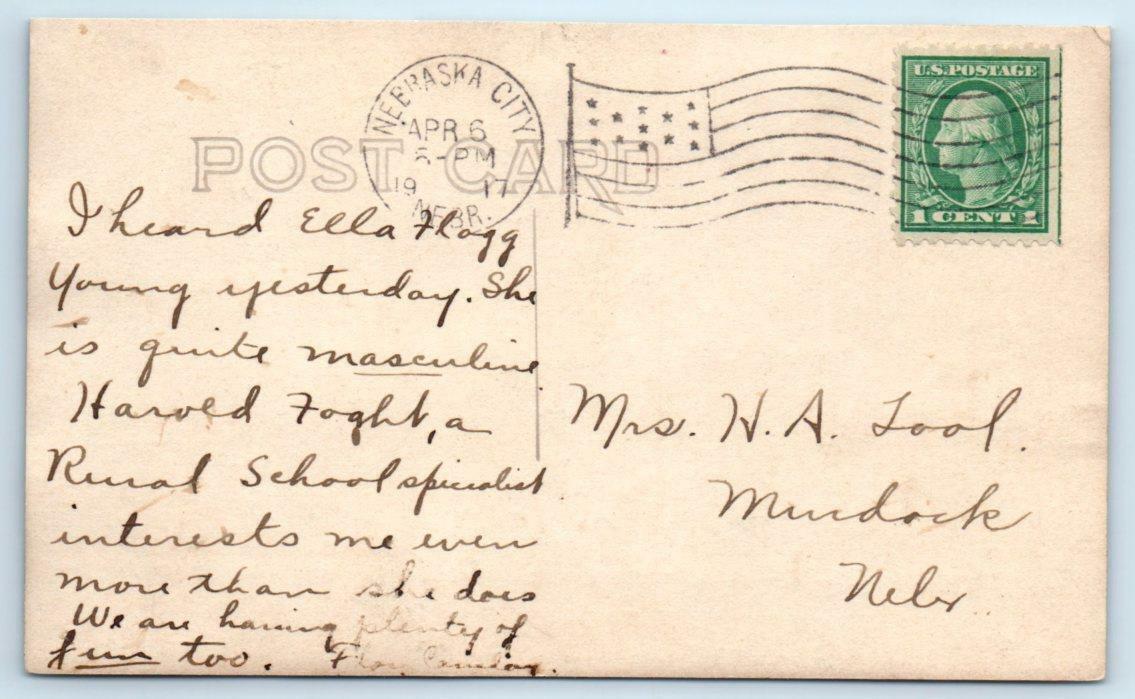 POST CARD
NEBRASKA CITY
APR 6
5-PM
19 17
NEBR.
U.S. POSTAGE
1 CENT 1
I heard Ella Flagg
Young yesterday. She
is quite masculine
Harold Foght, a
Rural School specialist
interests me even
more than she does
We are having plenty of
fun too. Flora
Mrs. H. A. Tool.
Murdock
Nebr.